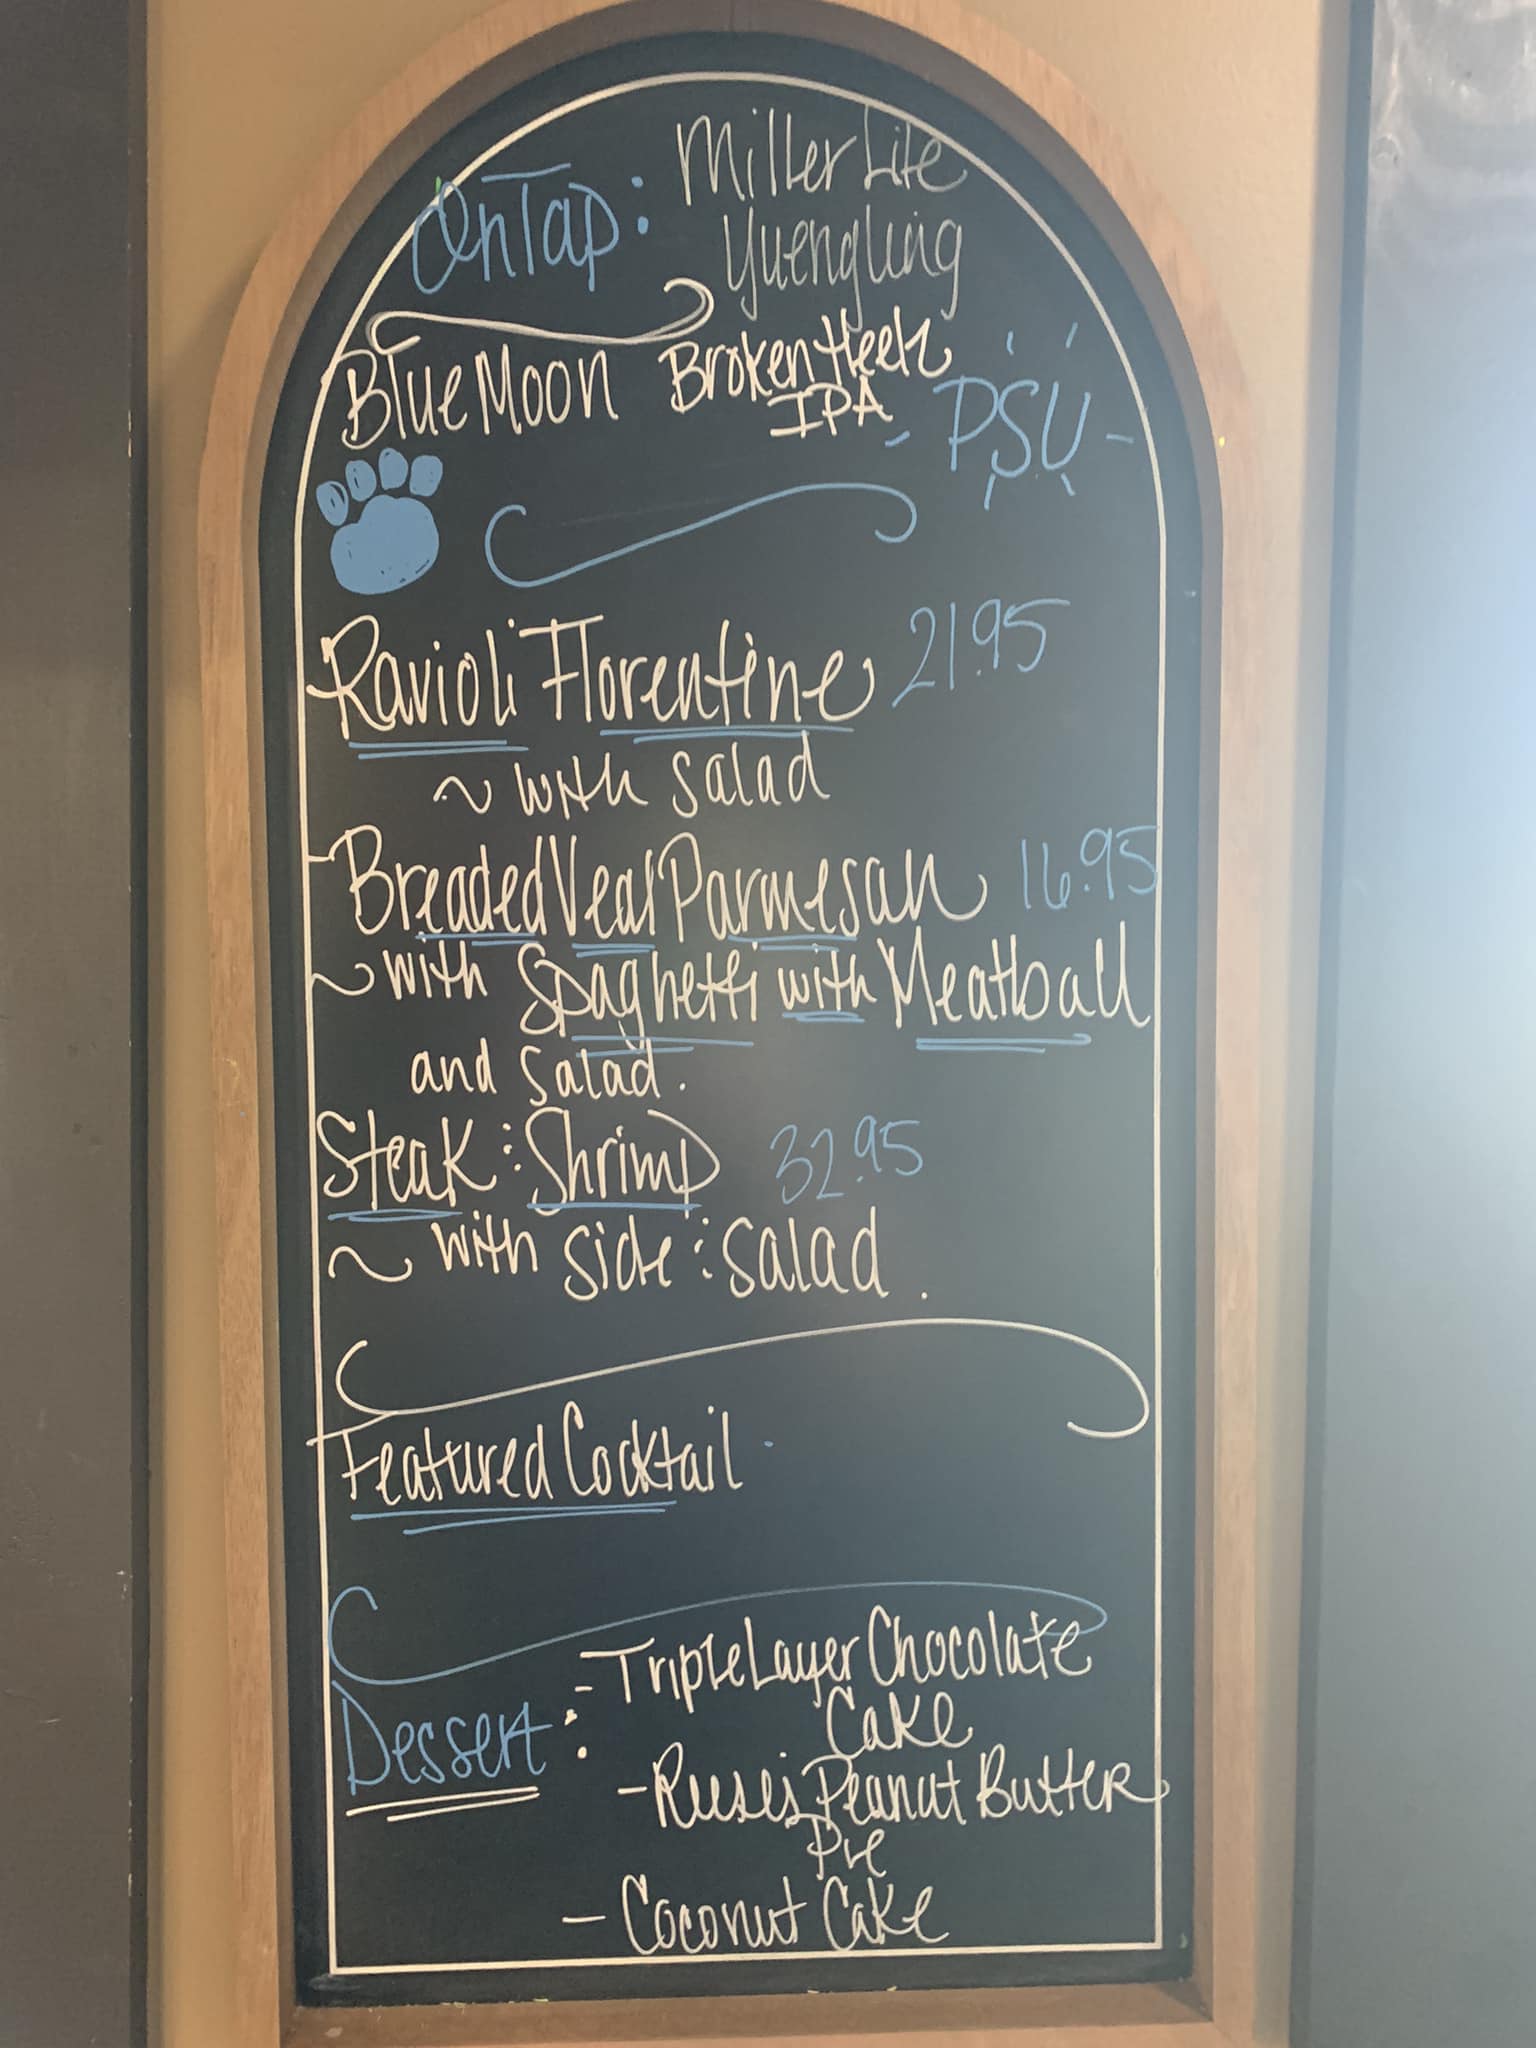 OnTap: Miller Lite
Yuengling
Blue Moon Broken Heels
IPA
- PSU -
Ravioli Florentine 21.95
~ with salad
Breaded Veal Parmesan 16.95
~ with Spaghetti with Meatball
and salad.
Steak : Shrimp 32.95
~ with side : salad.
Featured Cocktail
Dessert: - Triple Layer Chocolate
Cake
- Reese's Peanut Butter
Pie
- Coconut Cake